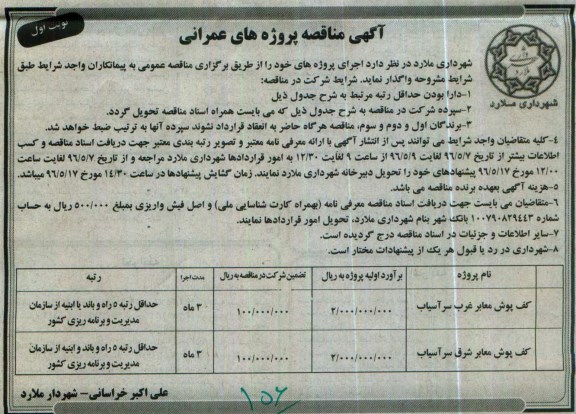 نوبت اول
آگهی مناقصه پروژه های عمرانی
شهرداری ملارد
شهرداری ملارد در نظر دارد اجرای پروژه های خود را از طریق برگزاری مناقصه عمومی به پیمانکاران واجد شرایط طبق
شرایط مشروحه واگذار نماید. شرایط شرکت در مناقصه:
۱-دارا بودن حداقل رتبه مرتبط به شرح جدول ذیل
۲-سپرده شرکت در مناقصه به شرح جدول ذیل که می بایست همراه اسناد مناقصه تحویل گردد.
۳-برندگان اول و دوم و سوم، مناقصه هرگاه حاضر به انعقاد قرارداد نشوند سپرده آنها به ترتیب ضبط خواهد شد.
۴-کلیه متقاضیان واجد شرایط می توانند پس از انتشار آگهی با ارائه معرفی نامه معتبر و تصویر رتبه بندی معتبر جهت دریافت اسناد مناقصه و کسب
اطلاعات بیشتر از تاریخ ۹۶/۵/۷ لغایت ۹۶/۵/۹ از ساعت ۹ لغایت ۱۲/۳۰ به امور قراردادها شهرداری ملارد مراجعه و از تاریخ ۹۶/۵/۷ لغایت ساعت
۱۲/۰۰ مورخ ۹۶/۵/۱۷ پیشنهادهای خود را تحویل دبیرخانه شهرداری ملارد نمایند. زمان گشایش پیشنهادها در ساعت ۱۴/۳۰ مورخ ۹۶/۵/۱۷ میباشد.
۵-هزینه آگهی بعهده برنده مناقصه می باشد.
۶-متقاضیان می بایست جهت دریافت اسناد مناقصه معرفی نامه (بهمراه کارت شناسایی ملی) و اصل فیش واریزی بمبلغ ۵۰۰/۰۰۰ ریال به حساب
شماره ۱۰۰۷۹۰۸۲۹۴۴۳ بانک شهر بنام شهرداری ملارد، تحویل امور قراردادها نمایند.
۷-سایر اطلاعات و جزئیات در اسناد مناقصه درج گردیده است.
۸-شهرداری در رد یا قبول هر یک از پیشنهادات مختار است.
نام پروژه برآورد اولیه پروژه به ریال تضمین شرکت در مناقصه به ریال مدت اجرا رتبه
کف پوش معابر غرب سرآسیاب ۲/۰۰۰/۰۰۰/۰۰۰ ۱۰۰/۰۰۰/۰۰۰ ۳ ماه حداقل رتبه ۵ راه و باند یا ابنیه از سازمان
مدیریت و برنامه ریزی کشور
کف پوش معابر شرق سرآسیاب ۲/۰۰۰/۰۰۰/۰۰۰ ۱۰۰/۰۰۰/۰۰۰ ۳ ماه حداقل رتبه ۵ راه و باند و ابنیه از سازمان
مدیریت و برنامه ریزی کشور
علی اکبر خراسانی- شهردار ملارد
۱۵۶